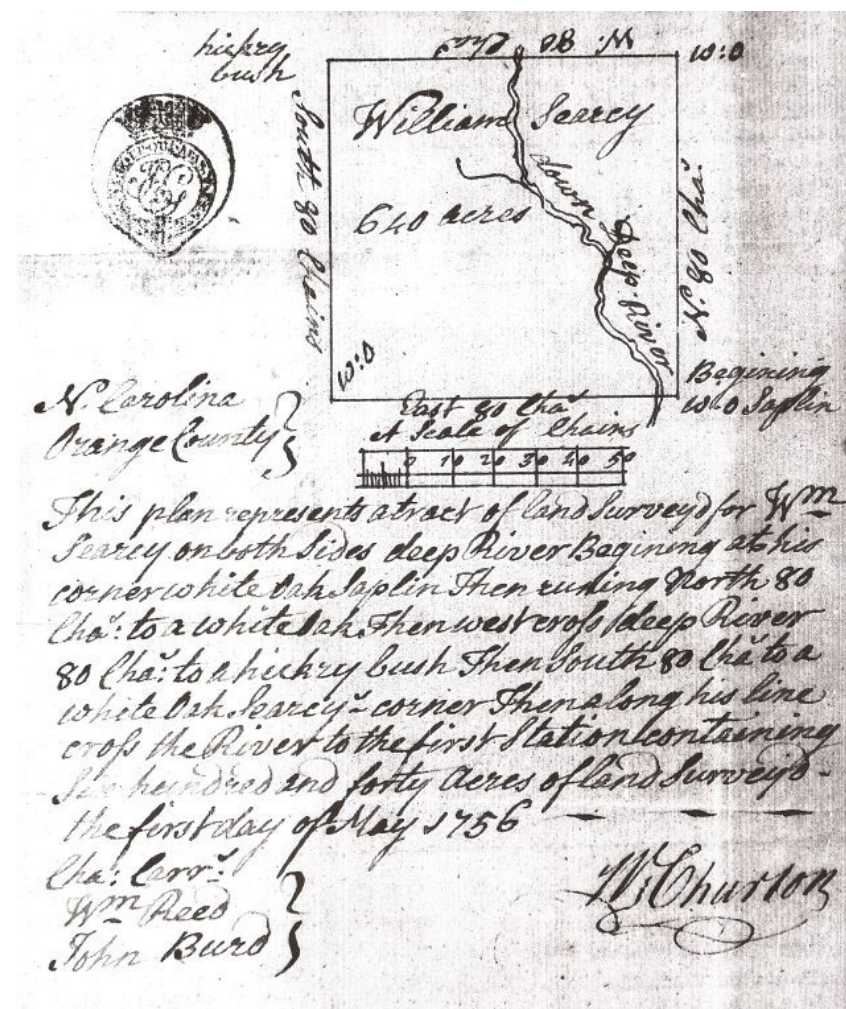 hickry
bush
W. 80 Cha.ˢ
W:O
South 80 Chains
William Searcy
640 acres
down Deep River
N. 80 Cha.ˢ
W:O
Begining
W:O Saplin
East 80 Cha.ˢ
A Scale of Chains
0 10 20 30 40 50
N. Carolina
Orange County
This plan represents a tract of land Surveyd for Wm
Searcy on both Sides deep River Begining at his
corner white Oak Saplin Then runing North 80
Cha.ˢ: to a white Oak Then west cross deep River
80 Cha.ˢ: to a hickry bush Then South 80 Cha.ˢ to a
white Oak Searcyˢ corner Then along his line
cross the River to the first Station containing
Six hundred and forty acres of land Surveyd
the first day of May 1756
Cha: Carrˢ
Wm Reed
John Burd
W Churton